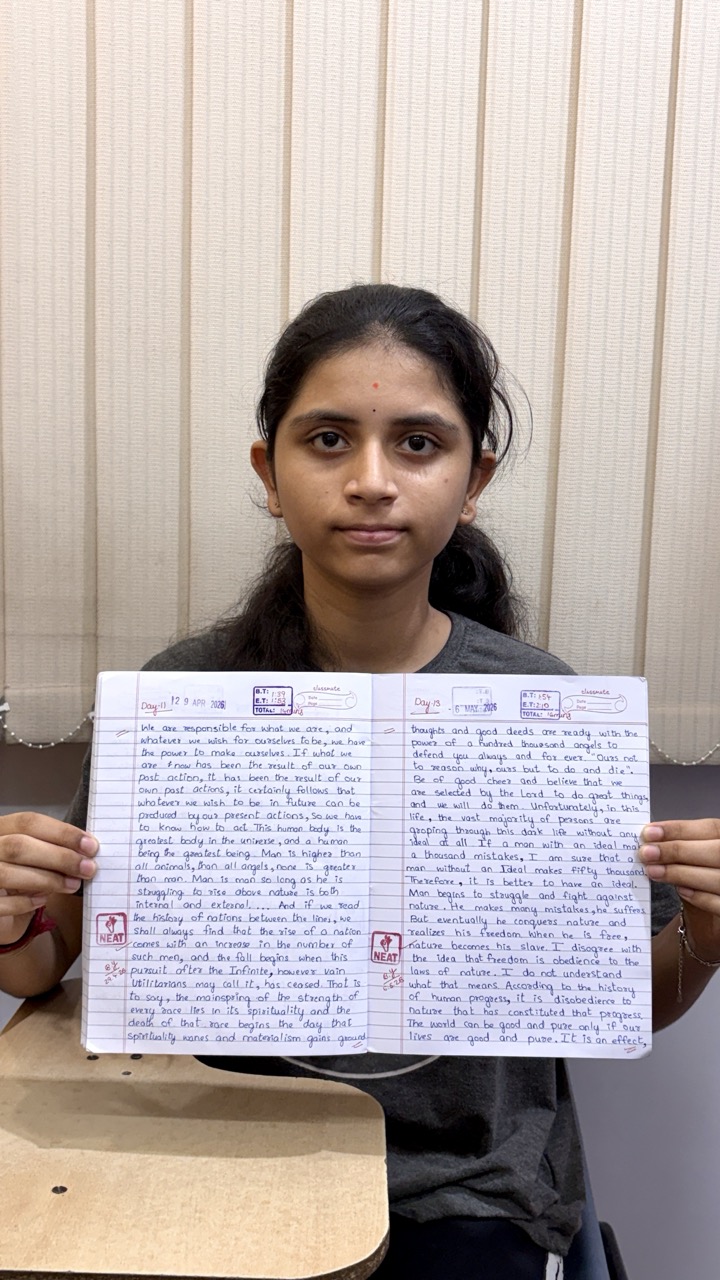 Day:11
29 APR 2026
B.T: 1:39
E.T: 1:53
TOTAL: 14mins
classmate
Date
Page
We are responsible for what we are, and
whatever we wish for ourselves to be, we have
the power to make ourselves. If what we
are know has been the result of our own
past action, it has been the result of our
own past actions, it certainly follows that
whatever we wish to be in future can be
produced by our present actions, so we have
to know how to act. This human body is the
greatest body in the universe, and a human
being the greatest being. Man is higher than
all animals, than all angels, none is greater
than man. Man is man so long as he is
struggling to rise above nature is both
internal and external.... And if we read
the history of nations between the lines, we
shall always find that the rise of a nation
comes with an increase in the number of
such men, and the fall begins when this
pursuit after the Infinite, however vain
Utilitarians may call it, has ceased. That is
to say, the mainspring of the strength of
every race lies in its spirituality and the
death of that race begins the day that
spirituality wanes and materialism gains ground
NEAT
Day:13
6 MAY 2026
B.T: 1:54
E.T: 2:10
TOTAL:
classmate
Date
Page
thoughts and good deeds are ready with the
power of a hundred thousand angels to
defend you always and for ever. "Ours not
to reason why, ours but to do and die".
Be of good cheer and believe that we
are selected by the Lord to do great things,
and we will do them. Unfortunately, in this
life, the vast majority of persons are
groping through this dark life without any
ideal at all. If a man with an ideal mak
a thousand mistakes, I am sure that a
man without an Ideal makes fifty thousand
Therefore, it is better to have an ideal.
Man begins to struggle and fight against
nature. He makes many mistakes, he suffers
But eventually he conquers nature and
realizes his freedom. When he is free,
nature becomes his slave. I disagree with
the idea that freedom is obedience to the
laws of nature. I do not understand
what that means. According to the history
of human progress, it is disobedience to
nature that has constituted that progress.
The world can be good and pure only if our
lives are good and pure. It is an effect,
NEAT